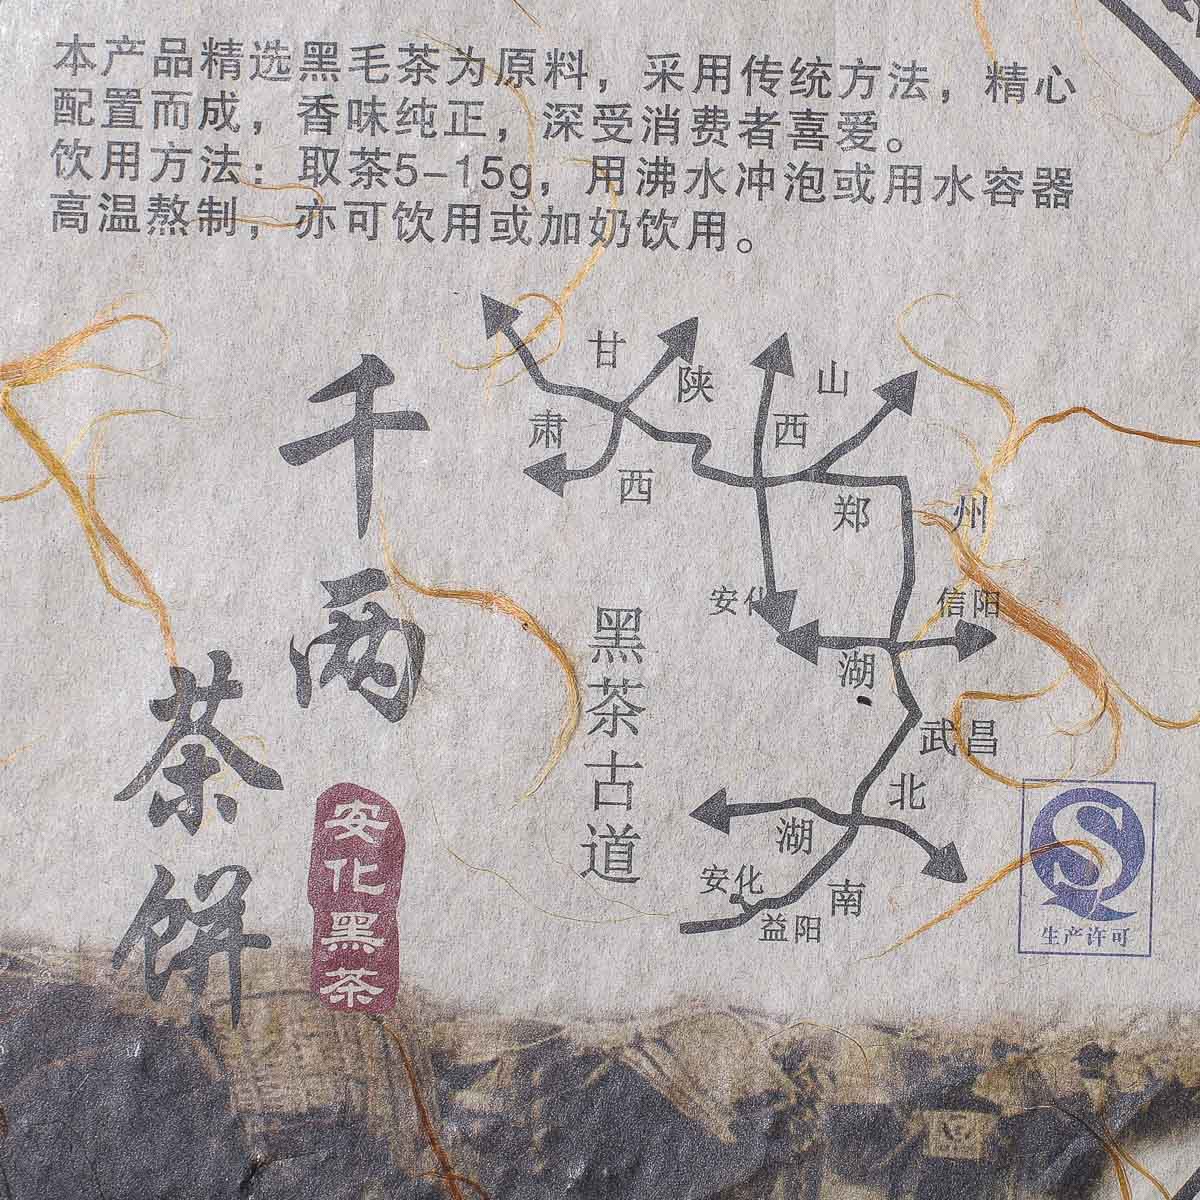 本产品精选黑毛茶为原料，采用传统方法，精心
配置而成，香味纯正，深受消费者喜爱。
饮用方法：取茶5-15g，用沸水冲泡或用水容器
高温熬制，亦可饮用或加奶饮用。
千两
茶饼
安化黑茶
黑茶古道
甘肃
陕西
山西
郑州
安化
信阳
湖北
武昌
湖南
安化
益阳
S
生产许可